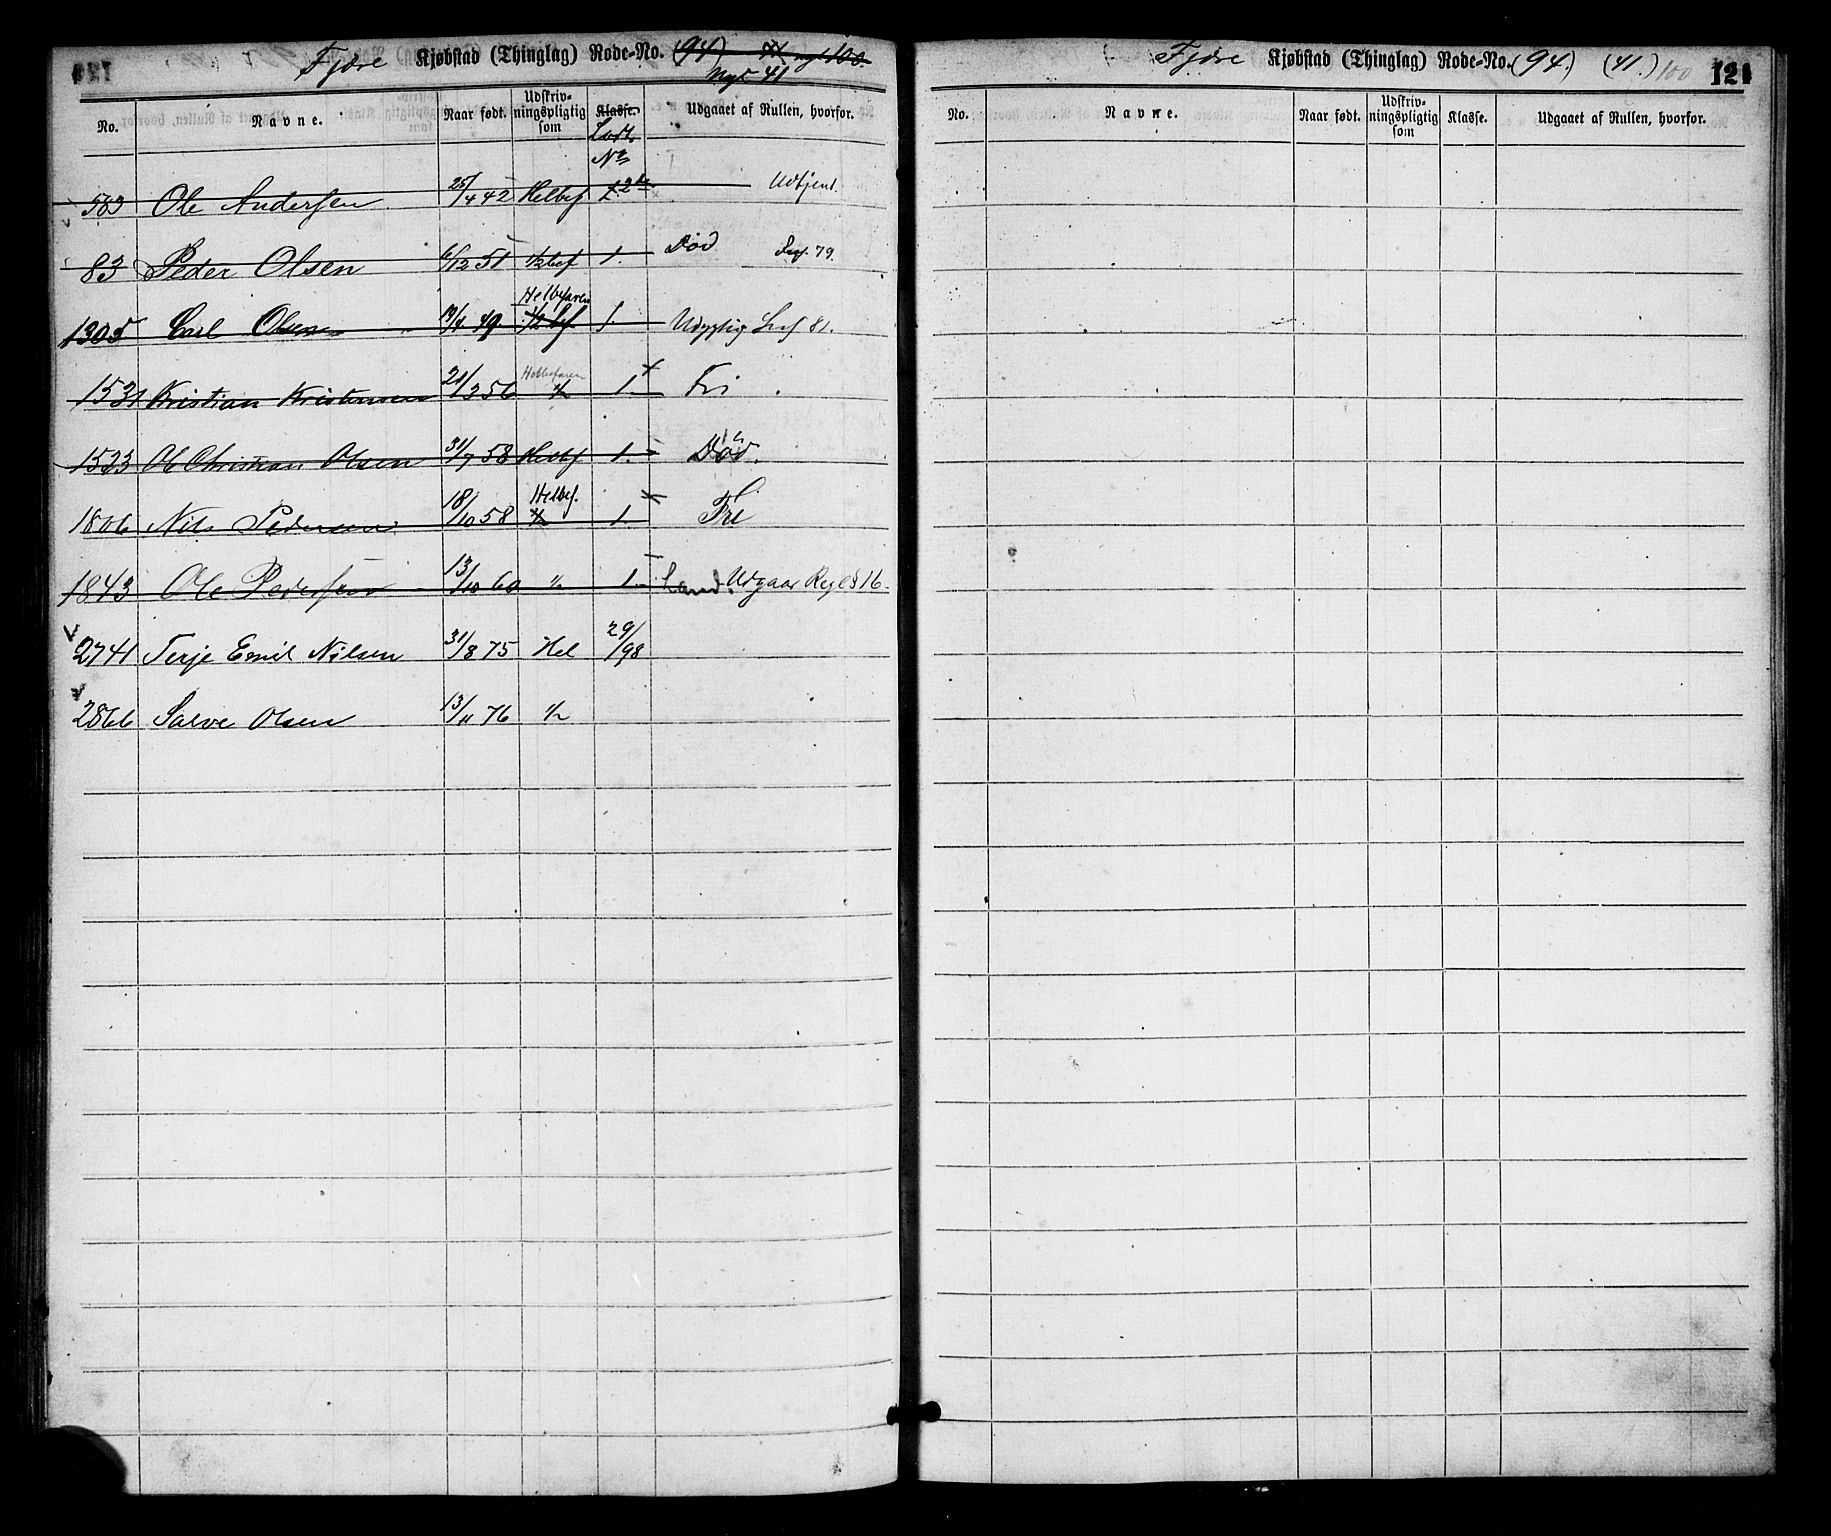 Fjære Kjøbstad (Thinglag) Rode-No. (94) 41 nyt 100
Nyt 41
No. Navne. Naar født. Udskriv-ningspligtig som Klasse. Udgaaet af Rullen, hvorfor.
Lodt. No
583 Ole Andersen 25/4 42 Helbef Udtjent.
83 Peder Olsen 6/12 51 1/2bef 1. Død Decf. 79.
Helbefaren
1305 Carl Olsen 19/4 49 1/2 bef 1. Udygtig 81.
Helbefaren
1531 Kristian Kristensen 21/2 56 1. Fri
1533 Ole Christian Olsen 31/7 58 Helbf 1. Død.
Helbef.
1806 Nils Pedersen 18/10 58 1. Fri
1843 Ole Pedersen 13/10 60 1. Land. Udgaar Regl § 16.
2741 Terje Emil Nilsen 31/8 75 Hel 29/98
2866 Salve Olsen 13/11 76
Fjære Kjøbstad (Thinglag) Rode-No. (94.) (41.) 100 121
No. Navne. Naar født. Udskriv-ningspligtig som Klasse. Udgaaet af Rullen, hvorfor.